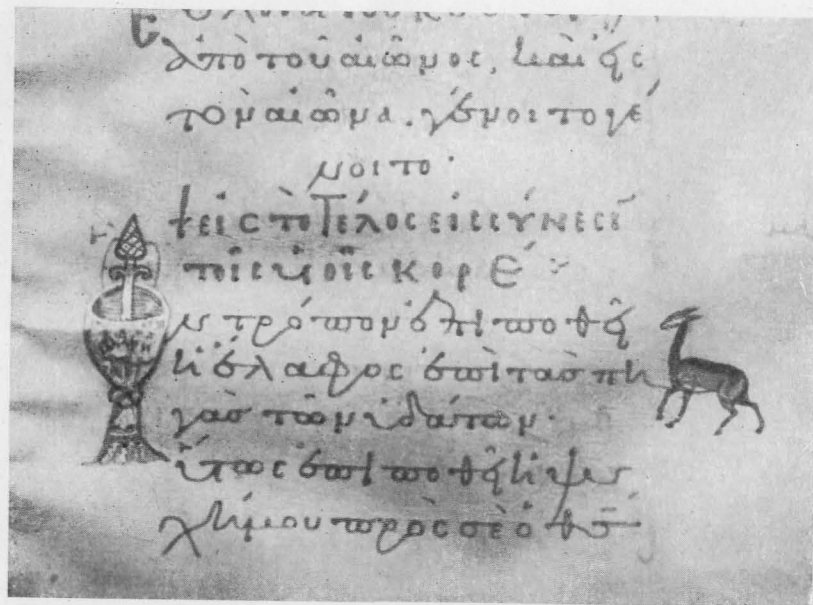 ἀπὸ τοῦ αἰῶνος, καὶ εἰς
τὸν αἰῶνα. γένοιτο γέ
νοιτο·
εἰς τὸ τέλος εἰς σύνεσι
τοῖς υἱοῖς κορέ
ν τρόπον ἐπιποθεῖ
ἡ ἔλαφος ἐπὶ τὰς πη
γὰς τῶν ὑδάτων·
οὕτως ἐπιποθεῖ ἡ ψυ
χή μου πρὸς σὲ ὁ θς